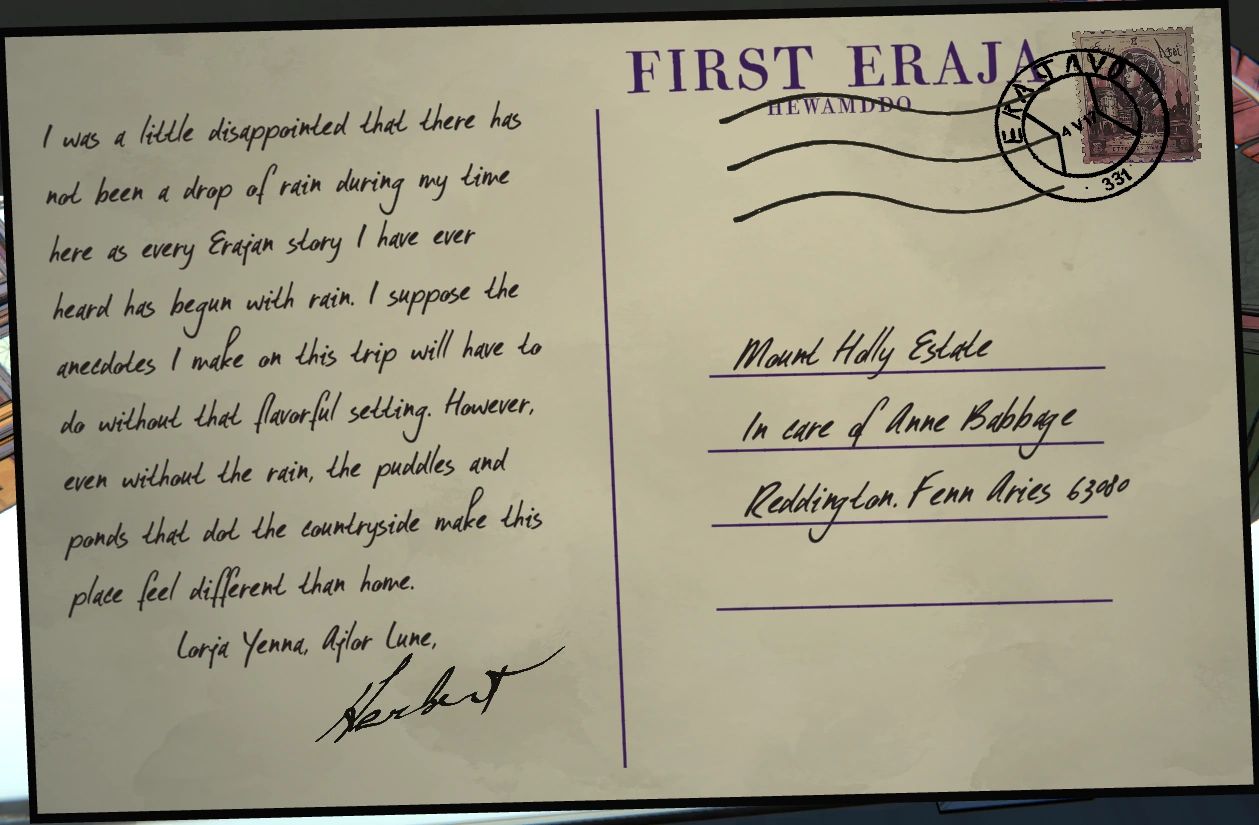 I was a little disappointed that there has
not been a drop of rain during my time
here as every Erajan story I have ever
heard has begun with rain. I suppose the
anecdotes I make on this trip will have to
do without that flavorful setting. However,
even without the rain, the puddles and
ponds that dot the countryside make this
place feel different than home.
Lorja Yenna, Ajlor Lune,
Herbert
FIRST ERAJA
HEWAMDDO
331
Mount Holly Estate
In care of Anne Babbage
Reddington. Fenn Aries 63080